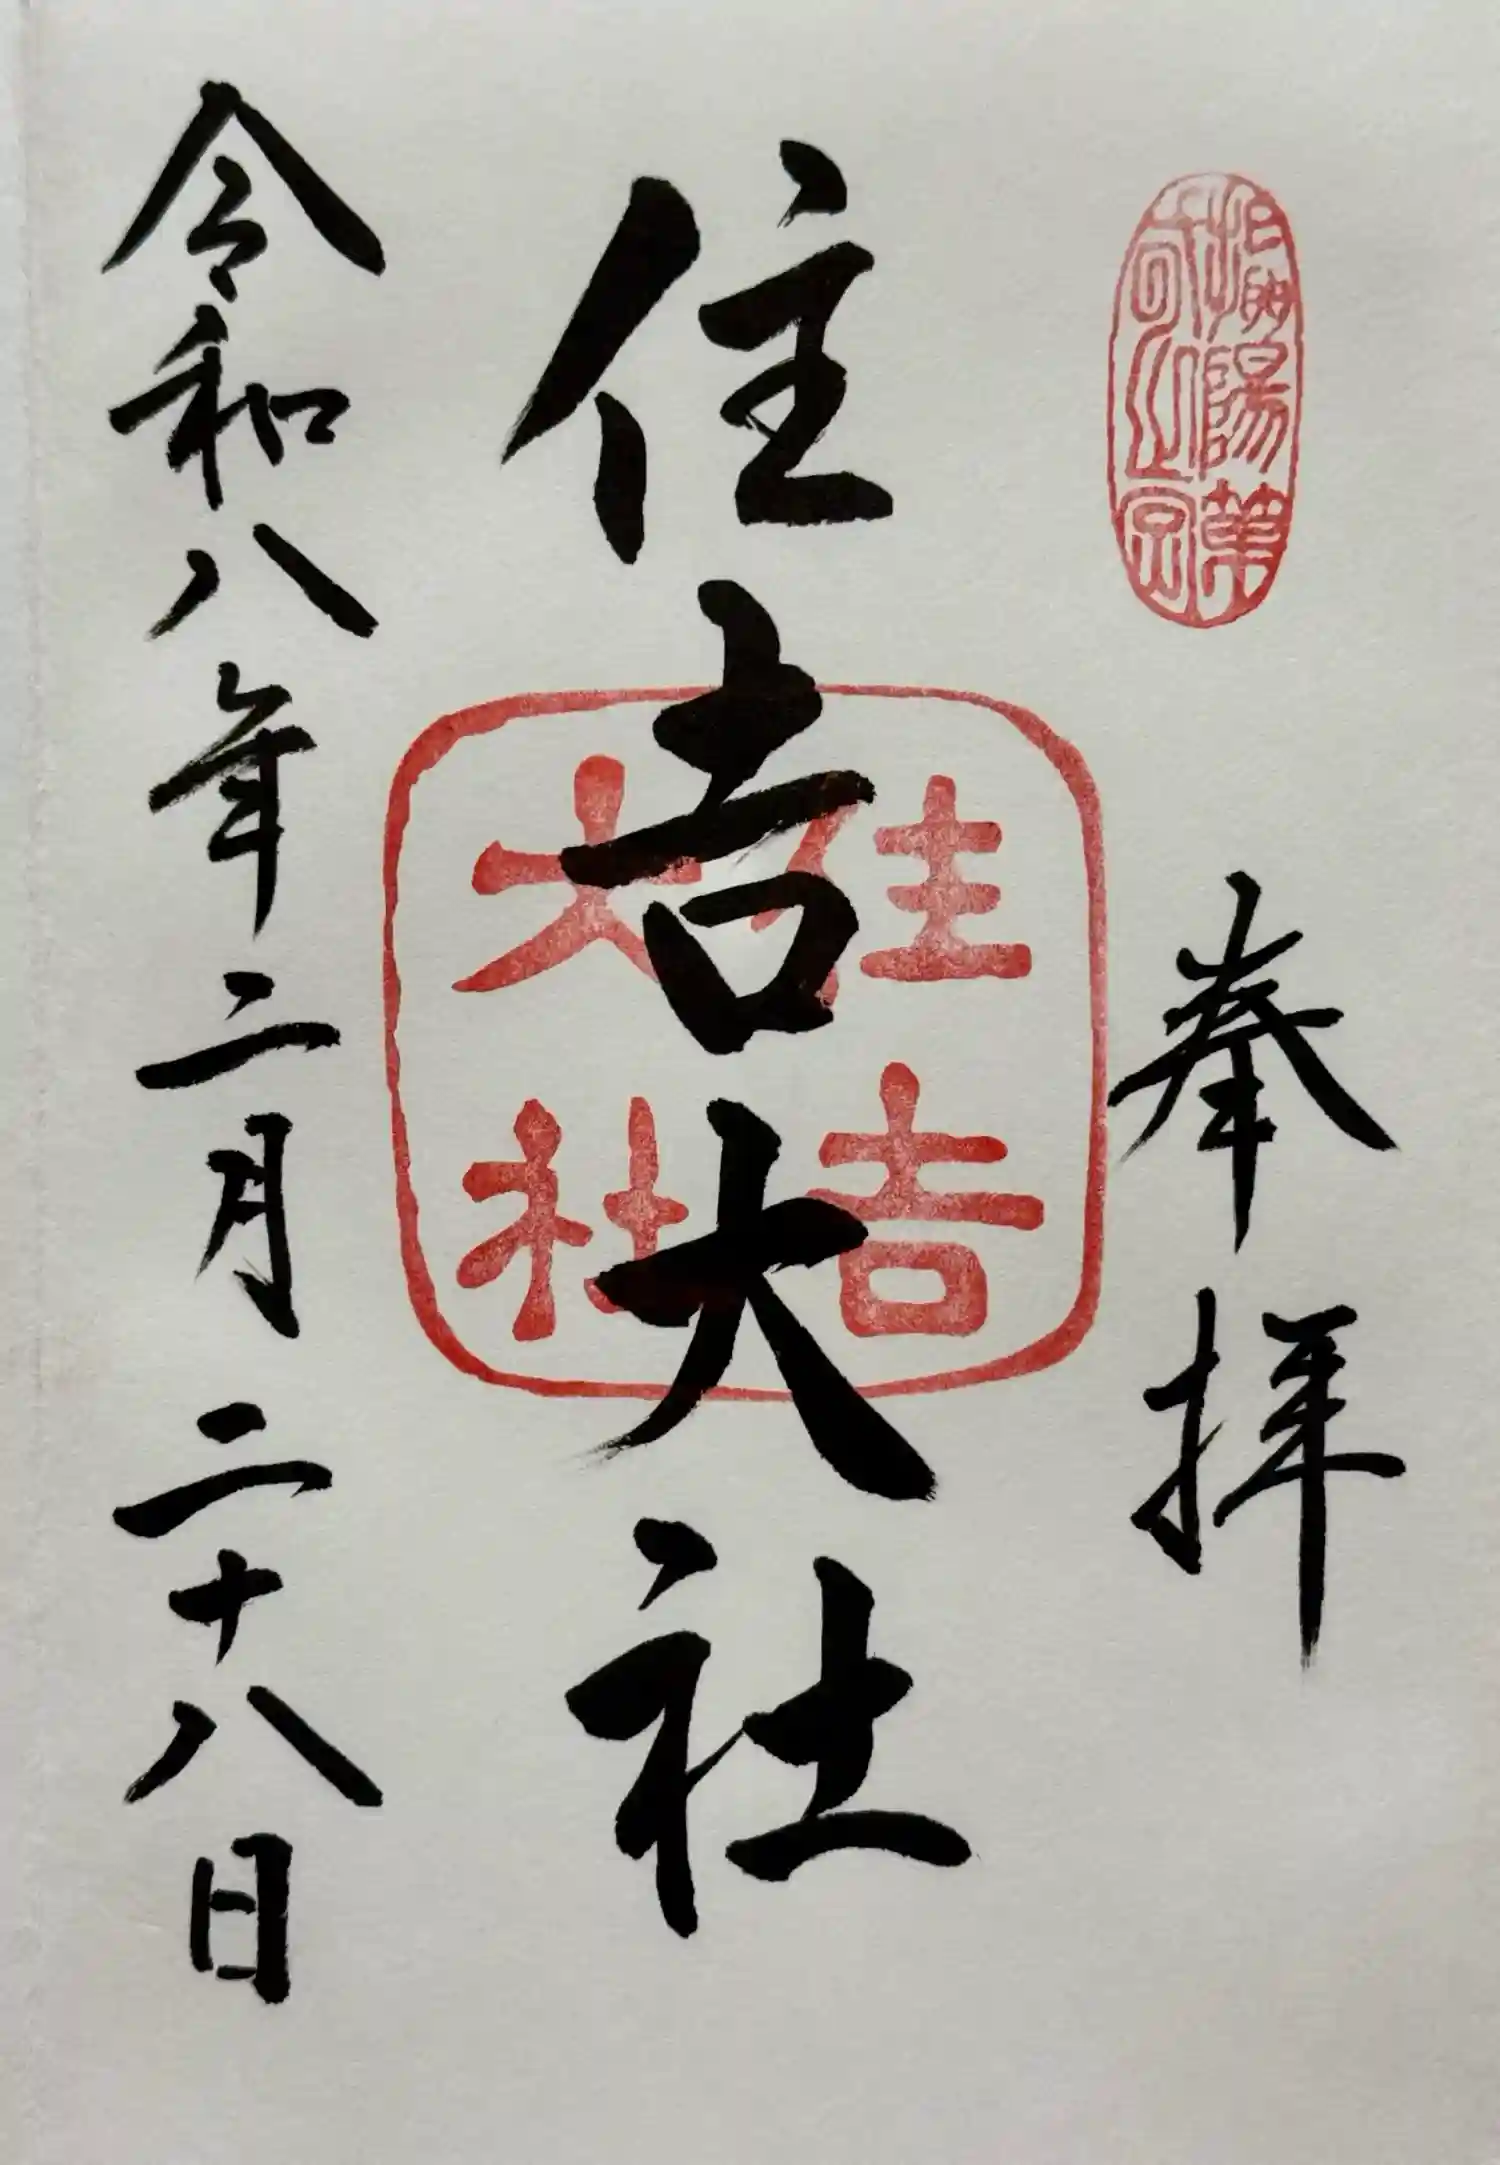 奉拝
住吉大社
令和八年二月二十八日
住吉
大社